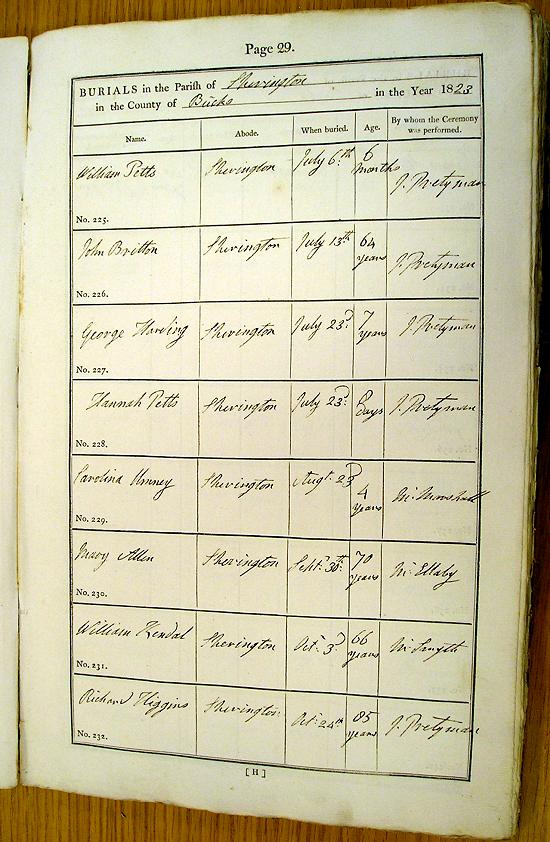 Page 29.
BURIALS in the Parish of Sherington
in the County of Bucks in the Year 1823
Name. Abode. When buried. Age. By whom the Ceremony was performed.
William Petts Sherington July 6th 6 months J. Pretyman
No. 225.
John Britton Sherington July 13th 64 years J. Pretyman
No. 226.
George Harding Sherington July 23d 7 years J. Pretyman
No. 227.
Hannah Petts Sherington July 23d days J. Pretyman
No. 228.
Carolina Umney Sherington Augt. 23d 4 years Mr. Marshall
No. 229.
Mary Allen Sherington Septr. 30th 70 years Mr. Ellaby
No. 230.
William Kendal Sherington Octr. 3d 66 years Mr. Smyth
No. 231.
Richard Higgins Sherington Octr. 24th 85 years J. Pretyman
No. 232.
[H]